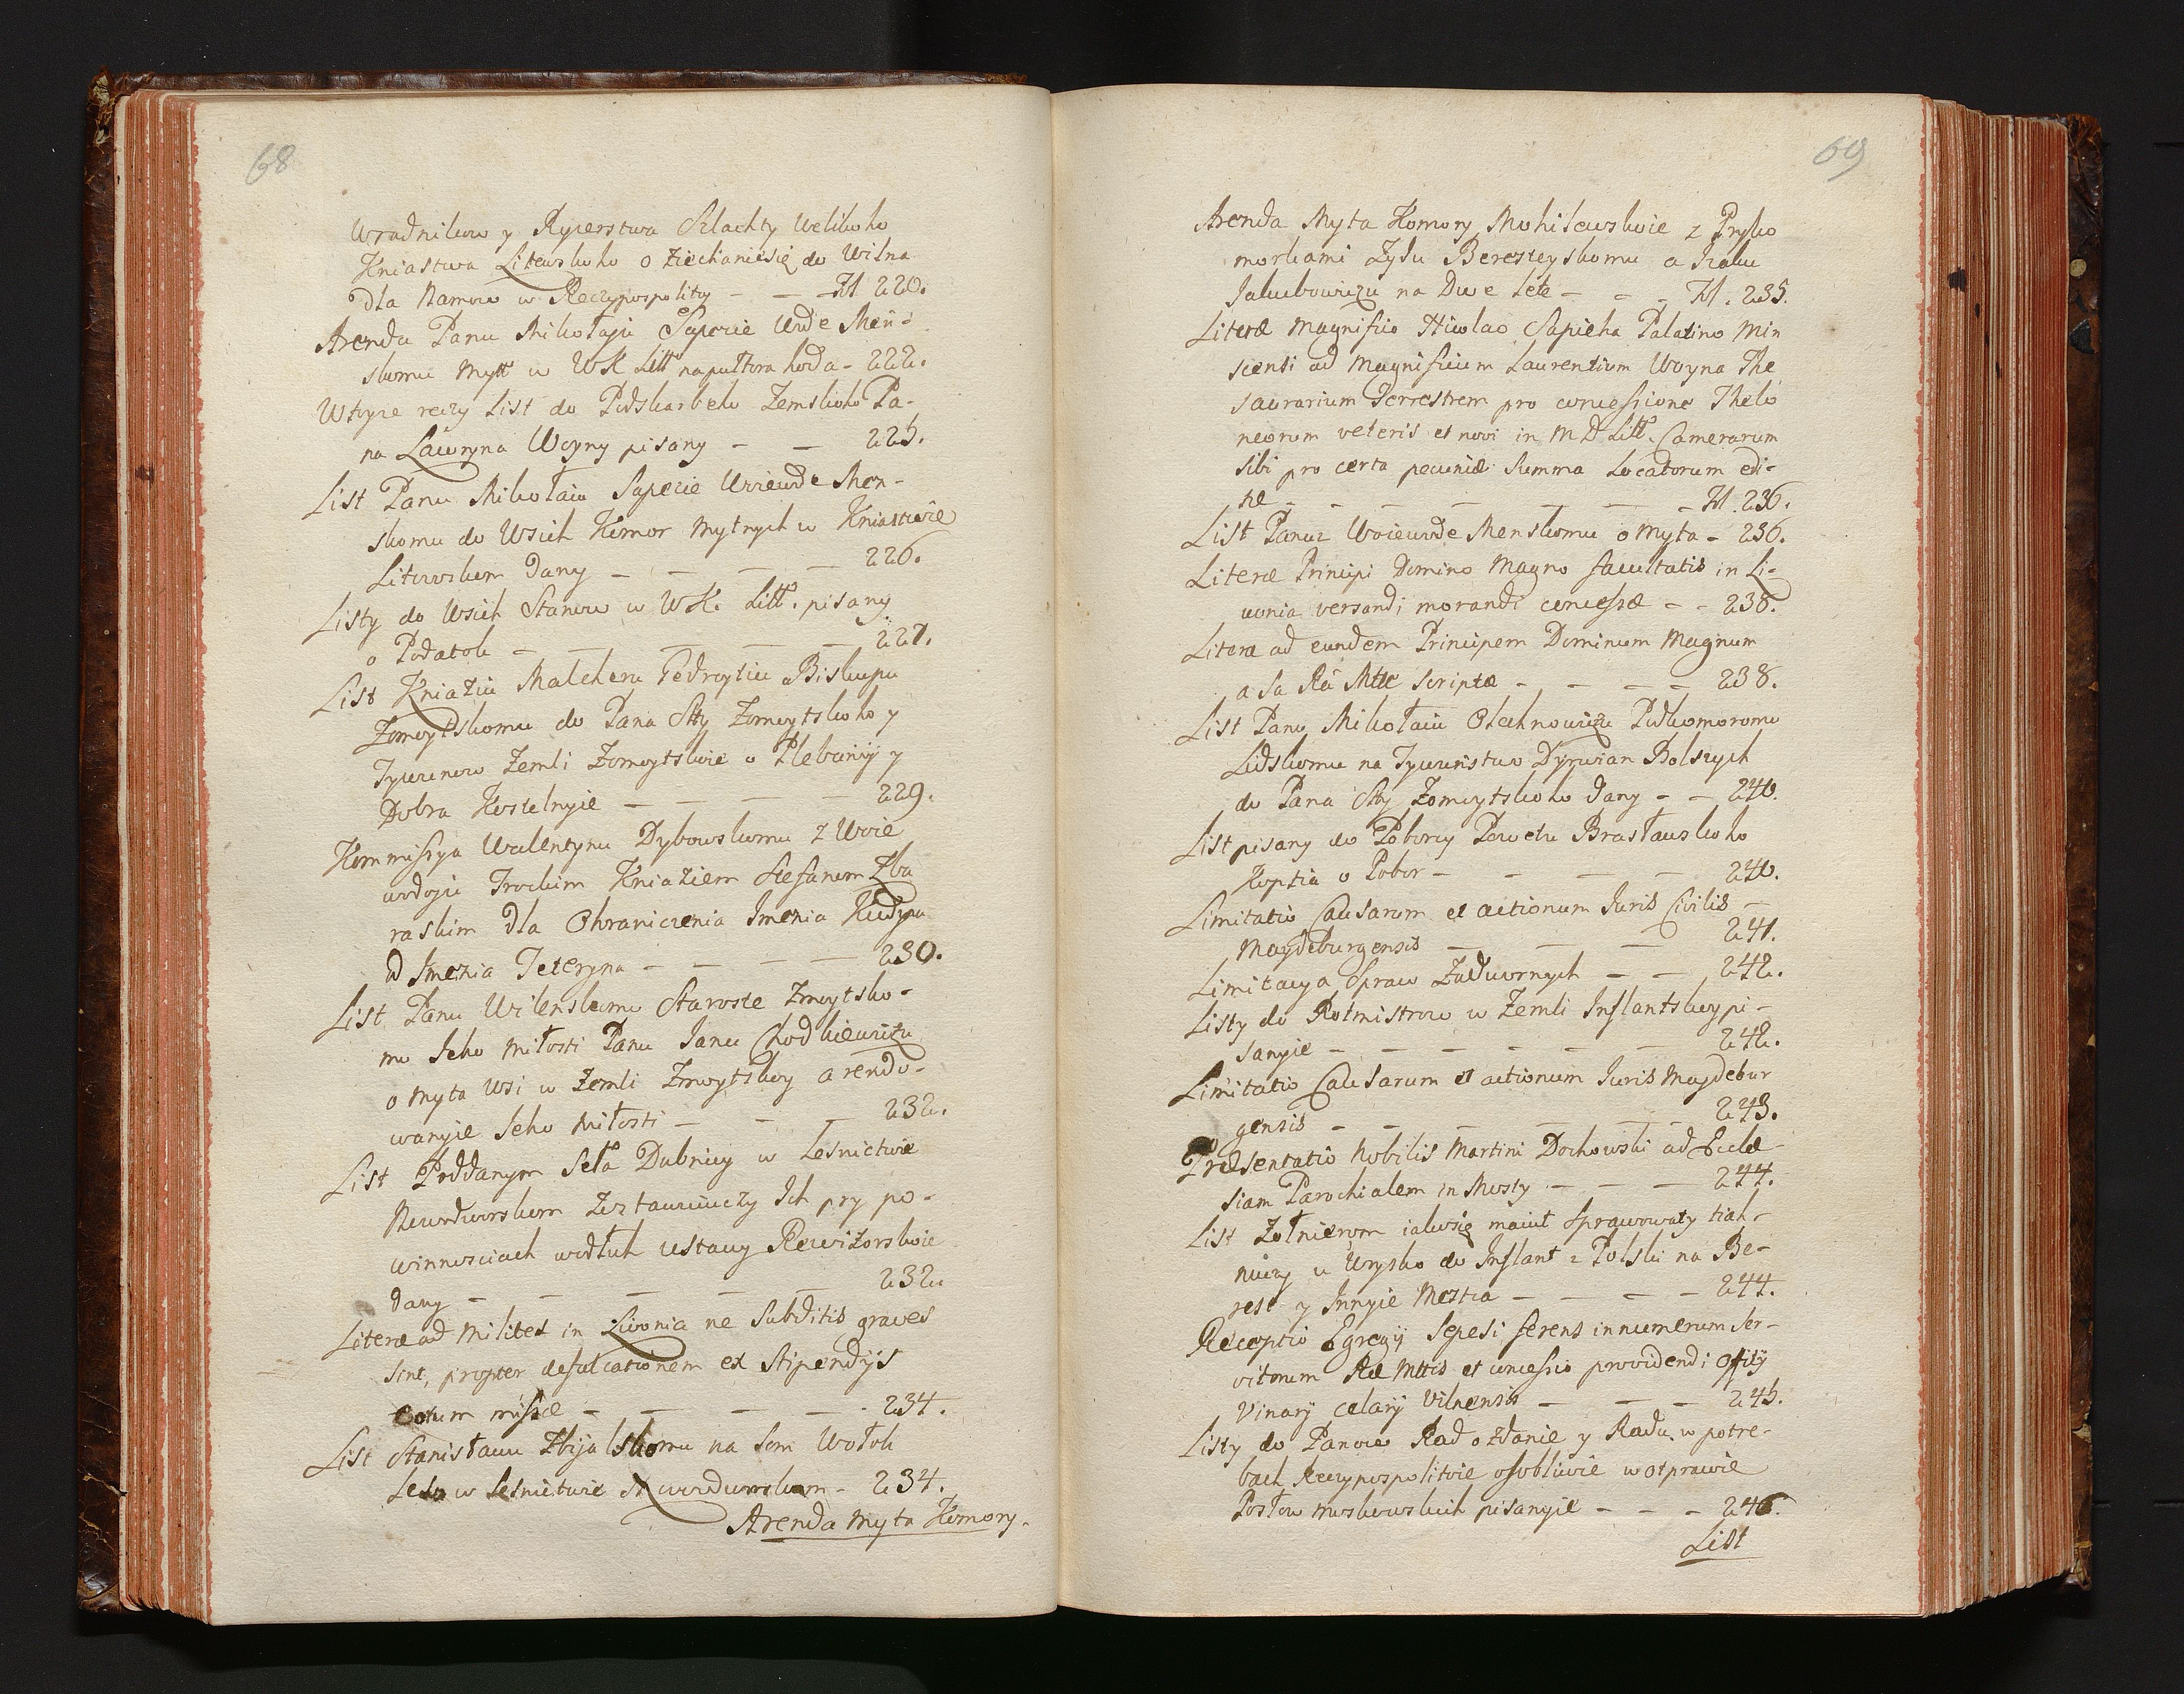 68
Uradnikow y Rycerstwa Szlachty Welikoho
Kniastwa Litewskoho o ziechaniesię do Wilna
dla Namow w Reczypospolitoy - - - Fol 220.
Arenda Panu Mikołaju Sapezie Wwde Meń-
skomu Myt w WK Litt napultora hoda - 222.
W toyze reczy List do Podskarbeho Zemskoho Pa-
na Ławryna Woyny pisany - - 225.
List Panu Mikołaiu Sapezie Woiewode Men-
skomu do Wsich Komor Mytnych w Kniastwie
Litowskom dany - - - - 226.
Listy do Wsich Stanow w WK. Litt. pisany
o Podatok - - - - - 227.
List Kniaziu Malcheru Gedroytiu Biskupu
Żomoytskomu do Pana Stty Żomoytskoho y
Tywunow Zemli Żomoytskoie o Plebanij y
Dobra Kostelnyie - - - - 229.
Kommissya Walentynu Dybowskomu z Woie
wodoju Trockim Kniaziem Stefanom Zba
raskim dla Ohraniczenia Imenia Kudynu
od Imenia Teteryna - - - - 230.
List Panu Wilenskomu Staroste Żmoytsko-
mu Jeho Miłosti Panu Janu Chodkiewiczu
o Myta Wsi w Zemli Żmoytskoy arendo-
wanyie Jeho Miłosti - - - 232.
List Poddanym Seła Dubnicy w Lesnictwie
Nowodworskom Zostawuiuczy Ich pry po-
winnosciach wodłuh ustawy Rewizorskoie
dany - - - - - 232.
Literæ ad Milites in Livonia ne Subditis graves
sint, propter defalcationem ex Stipendijs
eorum missæ - - - - - 234.
List Stanisławu Zbijalskomu na sem Wołok
Lesu w Lesnictwie Nowodworskom - 234.
Arenda Myta Komory.
69
Arenda Myta Komory Mohilewskoie z Pryko
morkami Żydu Beresteyskomu a Izaku
Jakubowiczu na Dwe Lete - - - Fol. 235.
Literæ Magnifico Nicolao Sapieha Palatino Min
scensi ad Magnificum Laurentium Woyna The
saurarium Terrestrem pro concessione Thelo
neorum veteris et novi in M D Litt. Camerarum
sibi pro certa pecuniæ Summa Locatorum edi-
tæ - - - - - - - Fol. 236.
List Panu Woiewode Menskomu o Myta - 236.
Literæ Principi Domino Magno facultatis in Li-
uonia versandi morandi concessæ - - 238.
Literæ ad eundem Principem Dominum Magnum
a Sa Ra Mtte scriptæ - - - - 238.
List Panu Mikołaiu Olechnowiczu Podkomoromu
Lidskomu na Tywunstwo Dyrwian Bolszych
do Pana Stty Żomoytskoho dany - - 240.
List pisany do Poborcy Powetu Brasławskoho
Koptia o Pobor - - - - 240.
Limitatio Causarum et actionum Iuris Civilis -
Magdeburgensis - - - 241.
Limitacya Spraw Zadwornych - - 242.
Listy do Rotmistrow w Zemli Inflantskoy pi-
sanyie - - - - - - 242.
Limitatio Causarum et actionum Iuris Magdebur
gensis - - - - - - 243.
Præsentatio Nobilis Martini Dochowski ad Eccle-
siam Parochialem in Mosty - - - 244.
List Żołnierom iakosię maiut sprawowaty tiah-
nuczy u Woysko do Inflant z Polski na Be-
rest y Innyie Mestca - - - - 244.
Receptio Egregij Sepesi ferens in numerum Ser-
vitorum Ræ Mttis et concessio providendi Officij
Vinarij celarij Vilnensis - - - 245.
Listy do Panow Rad o zdanie y Radu w potre-
bach Reczypospolitoie osobliwie w otprawie
Posłow Moskowskich pisanyie - - - 246.
List